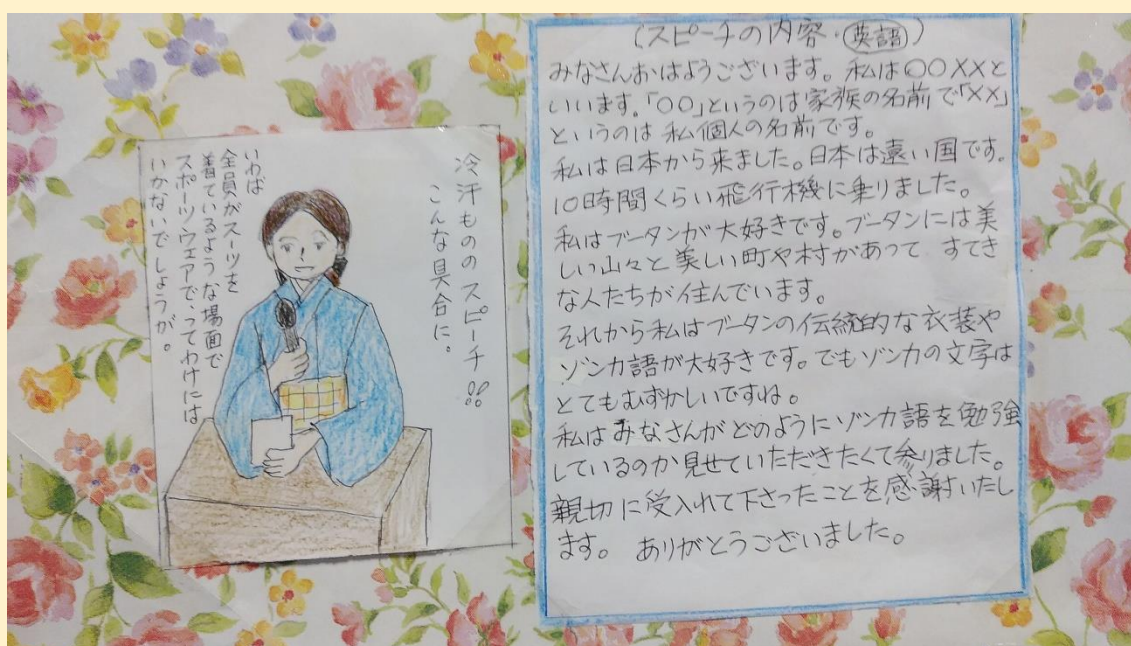 冷汗もののスピーチ!!
こんな具合に。
いわば
全員がスーツを
着ているような場面で
スポーツウェアで、ってわけには
いかないでしょうが。
(スピーチの内容・英語)
みなさんおはようございます。私は〇〇XXと
いいます。「〇〇」というのは家族の名前で「XX」
というのは私個人の名前です。
私は日本から来ました。日本は遠い国です。
10時間くらい飛行機に乗りました。
私はブータンが大好きです。ブータンには美
しい山々と美しい町や村があって すてき
な人たちが住んでいます。
それから私はブータンの伝統的な衣装や
ゾンカ語が大好きです。でもゾンカの文字は
とてもむずかしいですね。
私はみなさんがどのようにゾンカ語を勉強
しているのか見せていただきたくて参りました。
親切に受入れて下さったことを感謝いたし
ます。 ありがとうございました。